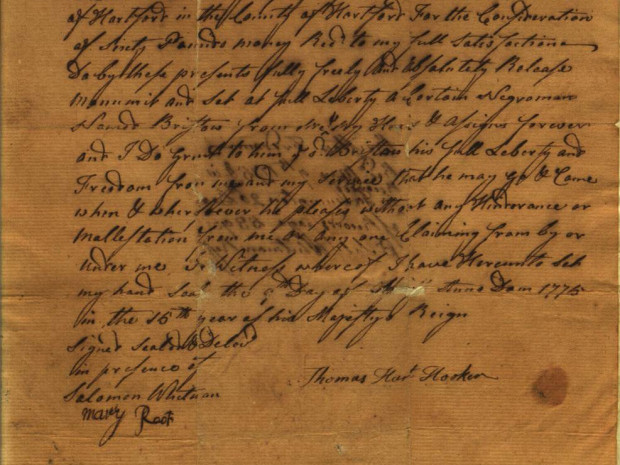 of Hartford in the County of Hartford For the Consideration
of Sixty Pounds money Recd to my full Satisfactions
Do by these presents fully freely and absolutely Release
Manumit and Set at full Leberty a Certain Negroman
Named Bristow from me my Heirs & Asigns forever
and I Do grant to him ye sd Bristow his full Leberty and
Freedom from me and my Service that he may go & Come
when & wheresoever he pleases without any Hinderance or
Mallestation from me or any one Claiming from by or
under me In Witness whereof I have Hereunto Set
my hand Seal the Day of Anno Dom 1775
in the 15th year of his Majestys Reign
Signed Sealed & Delivd
in presence of
Thomas Hart Hooker
Salomon Whitman
Mary Root